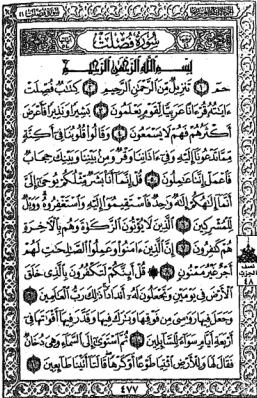 سُورَةُ فُصِّلَتْ
بِسْمِ اللَّهِ الرَّحْمَٰنِ الرَّحِيمِ
حمٓ ١ تَنزِيلٌ مِّنَ الرَّحْمَٰنِ الرَّحِيمِ ٢ كِتَابٌ فُصِّلَتْ
ءَايَاتُهُ قُرْءَانًا عَرَبِيًّا لِّقَوْمٍ يَعْلَمُونَ ٣ بَشِيرًا وَنَذِيرًا فَأَعْرَضَ
أَكْثَرُهُمْ فَهُمْ لَا يَسْمَعُونَ ٤ وَقَالُوا قُلُوبُنَا فِي أَكِنَّةٍ
مِّمَّا تَدْعُونَا إِلَيْهِ وَفِي ءَاذَانِنَا وَقْرٌ وَمِن بَيْنِنَا وَبَيْنِكَ حِجَابٌ
فَاعْمَلْ إِنَّنَا عَامِلُونَ ٥ قُلْ إِنَّمَا أَنَا بَشَرٌ مِّثْلُكُمْ يُوحَىٰ إِلَيَّ
أَنَّمَا إِلَٰهُكُمْ إِلَٰهٌ وَاحِدٌ فَاسْتَقِيمُوا إِلَيْهِ وَاسْتَغْفِرُوهُ وَوَيْلٌ
لِّلْمُشْرِكِينَ ٦ الَّذِينَ لَا يُؤْتُونَ الزَّكَوٰةَ وَهُم بِالْآخِرَةِ
هُمْ كَافِرُونَ ٧ إِنَّ الَّذِينَ ءَامَنُوا وَعَمِلُوا الصَّالِحَاتِ لَهُمْ
أَجْرٌ غَيْرُ مَمْنُونٍ ٨ ۞ قُلْ أَئِنَّكُمْ لَتَكْفُرُونَ بِالَّذِي خَلَقَ
الْأَرْضَ فِي يَوْمَيْنِ وَتَجْعَلُونَ لَهُ أَندَادًا ذَٰلِكَ رَبُّ الْعَالَمِينَ ٩
وَجَعَلَ فِيهَا رَوَاسِيَ مِن فَوْقِهَا وَبَارَكَ فِيهَا وَقَدَّرَ فِيهَا أَقْوَاتَهَا فِي
أَرْبَعَةِ أَيَّامٍ سَوَاءً لِّلسَّائِلِينَ ١٠ ثُمَّ اسْتَوَىٰ إِلَى السَّمَاءِ وَهِيَ دُخَانٌ
فَقَالَ لَهَا وَلِلْأَرْضِ ائْتِيَا طَوْعًا أَوْ كَرْهًا قَالَتَا أَتَيْنَا طَائِعِينَ ١١
نصف
الحزب
٤٨
٤٧٧